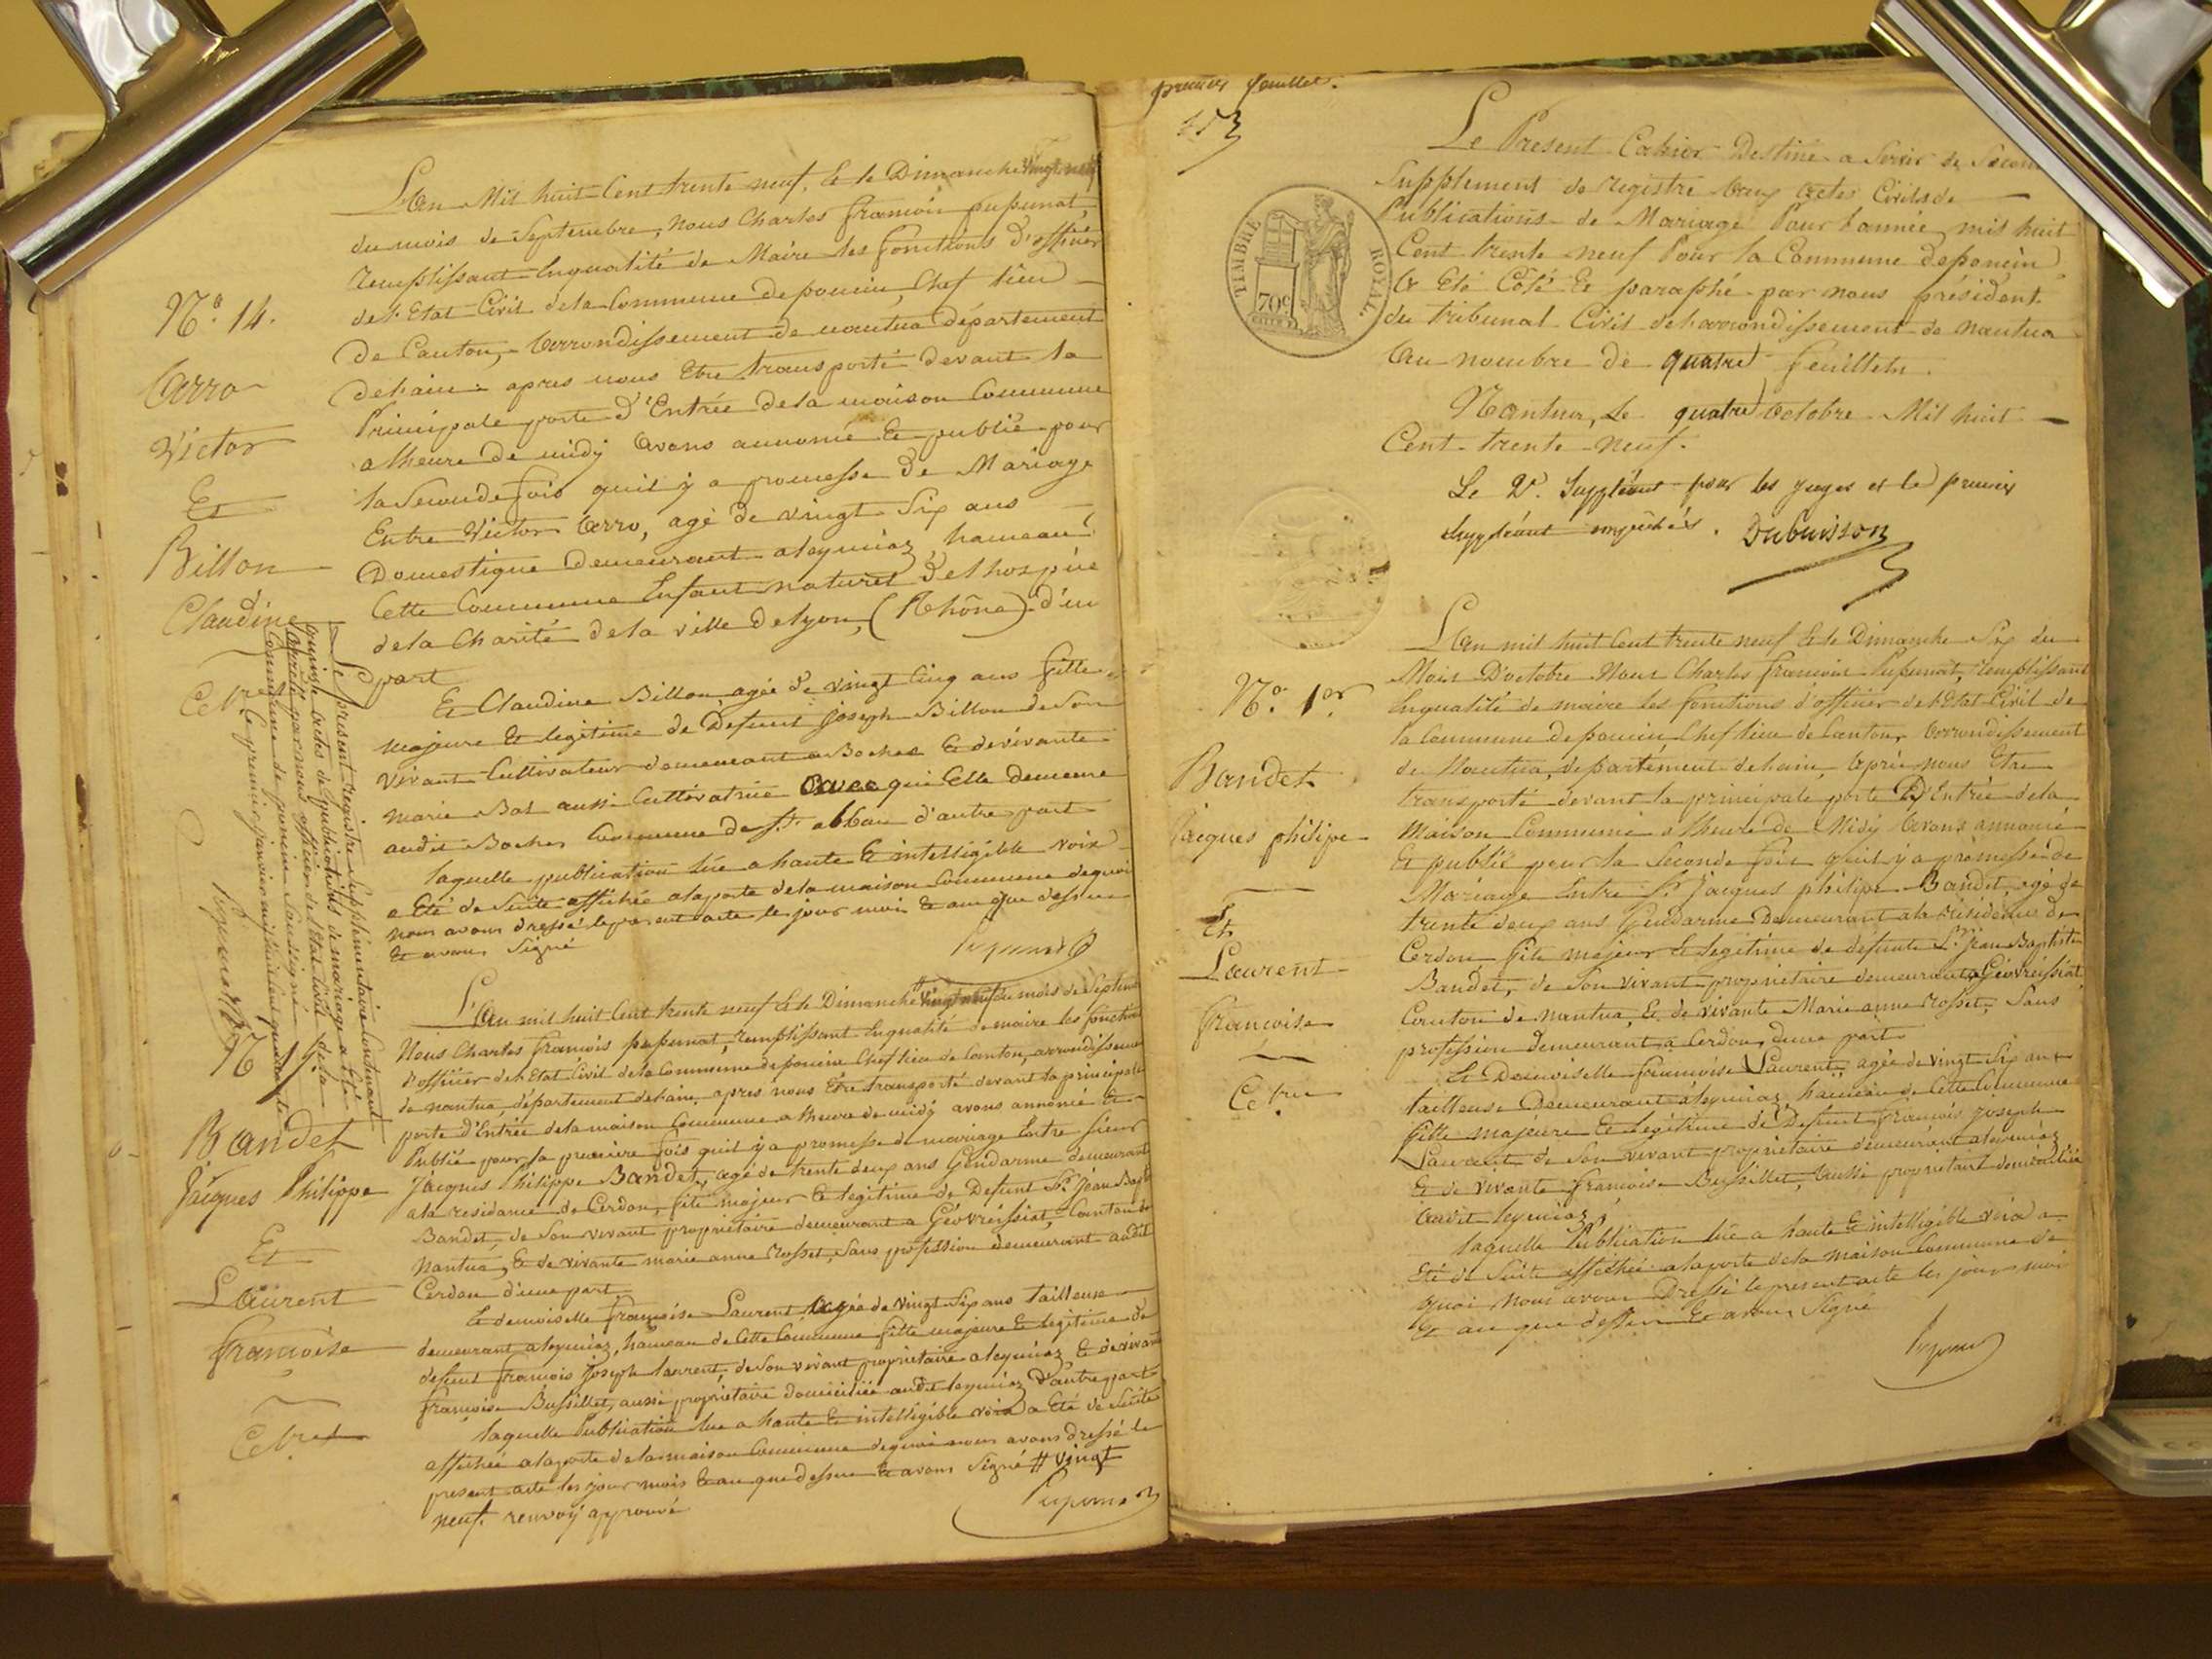 L'an Mil huit Cent trente neuf, Et le Dimanche vingt neuf
du mois de Septembre, nous Charles françois pupunat,
Remplissant Enqualité de Maire les fonctions d'officier
del'Etat Civil dela Commune deponcin, Chef lieu
De Canton, Arrondissement de nantua département
delain. apres nous Etre transporté devant la
Principale porte d'Entrée dela maison Commune
alheure de midy Avons annoncé Et publié pour
la Seconde fois quil y a promesse de Mariage
Entre Victor Arro, agé de vingt Six ans
Domestique Demeurant aleymiaz, hameau
Cette Commune Enfant naturel delhospice
dela Charité dela ville delyon, (Rhône) d'un
part
Et Claudine Billon, agée de vingt Cinq ans fille
majeure Et legitime de Defunt joseph Billon de Son
vivant Cultivateur demeurant a Boches Et devivante
marie Bal aussi Cultivatrice Avec qui Elle demeure
audit Boches Commune de St. alban d'autre part
laquelle publication lue a haute Et intelligible voix
a Eté de Suite affichée alaporte dela maison Commune dequoi
nous avons dressé leprésent acte le jour mois Et an que dessus
Et avons Signé
Pupunat
No. 14.
Arro
Victor
Et
Billon
Claudine
Le présent registre Supplémentaire Contenant
quinze actes de publications de mariage a Eté
par nous officier del'Etat Civil dela
Commune de poncin Soussigné
Le premier janvier mil huit Cent quarante
Pupunat
L'an mil huit Cent trente neuf Et le Dimanche # vingt neuf du mois de Septembre
Nous Charles françois pupunat, Remplissant Enqualité demaire les fonctions
d'officier del'Etat Civil dela Commune deponcin Chef lieu de Canton, arrondissement
de nantua, département delain, apres nous Etre transporté devant la principale
porte d'Entrée dela maison Commune a lheure de midy avons annoncé Et
Publié pour la premiere fois quil y a promesse de mariage Entre Sieur
Jacques Philippe Bandet, agé de trente deux ans Gendarme demeurant
ala residance de Cerdon, fils majeur Et legitime de Defunt Sr. Jean Bapte
Bandet, de Son vivant propriétaire demeurant a Géovreissiat, Canton de
nantua, Et de vivante marie anne Rosset, Sans profession demeurant audit
Cerdon d'une part
Et demoiselle françoise Laurent agée de vingt Six ans tailleuse
demeurant aleymiaz, hameau de Cette Commune fille majeure Et legitime de
defunt françois Joseph laurent, de Son vivant propriétaire aleymiaz Et de vivante
françoise Bussillet, aussi propriétaire domiciliée audit leymiaz d'autre part
laquelle Publication lue a haute Et intelligible voix a Eté de Suite
affichée alaporte dela maison Commune dequoi nous avons dressé le
present acte les jour mois Et an que dessus Et avons Signé # vingt
neuf. renvoy approuvé
Pupunat
No. 15.
Bandet
Jacques Philippe
Et
Laurent
françoise
premier feuillet.
Le Present Cahier Destiné a Servir de Second
Supplement de registre Aux Actes Civils de
Publications de Mariage Pour l'année mil huit
Cent trente neuf Pour la Commune deponcin
A Eté Côté Et paraphé par nous président
du tribunal Civil del'arrondissement de nantua
Au nombre de quatre feuillets.
Nantua, Le quatre octobre Mil huit
Cent trente neuf.
Le 2e. Suppléant pour les juges et le premier
Suppléant empêchés. Dubuisson
TIMBRE ROYAL.
70c.
L'an mil huit Cent trente neuf Et le Dimanche Six du
Mois D'octobre Nous Charles françois Pupunat, remplissant
Enqualité de maire les fonctions d'officier del'Etat Civil de
la Commune deponcin Chef lieu de Canton, Arrondissement
de Nantua, département delain, Après nous Etre
transporté devant la principale porte D'Entrée dela
Maison Commune a lheure de Midy Avons annoncé
Et publié pour la Seconde fois quil y a promesse de
Mariage Entre Sr. jacques philipe Bandet, agé de
trente deux ans Gendarme Demeurant ala Résidence de
Cerdon fils majeur Et legitime de défunt Sr. Jean Baptiste
Bandet, de Son vivant propriétaire demeurant a Géovreissiat
Canton de nantua, Et de vivante Marie anne Rosset, Sans
profession demeurant a Cerdon, dune part
Et Demoiselle françoise Laurent, agée de vingt Six ans
tailleuse Demeurant aleymiaz, hameau de Cette Commune
fille majeure Et Légitime de Defunt françois joseph
Laurent de Son vivant propriétaire demeurant aleymiaz
Et de vivante françoise Bussillet, aussi propriétaire domiciliée
audit leymiaz,
laquelle Publication lue a haute Et intelligible voix a
Eté de Suite affichée alaporte dela maison Commune de
quoi Nous avons Dressé le present acte les jour mois
Et an que dessus Et avons Signé
Pupunat
No. 1er.
Bandet
Jacques philipe
Et
Laurent
françoise